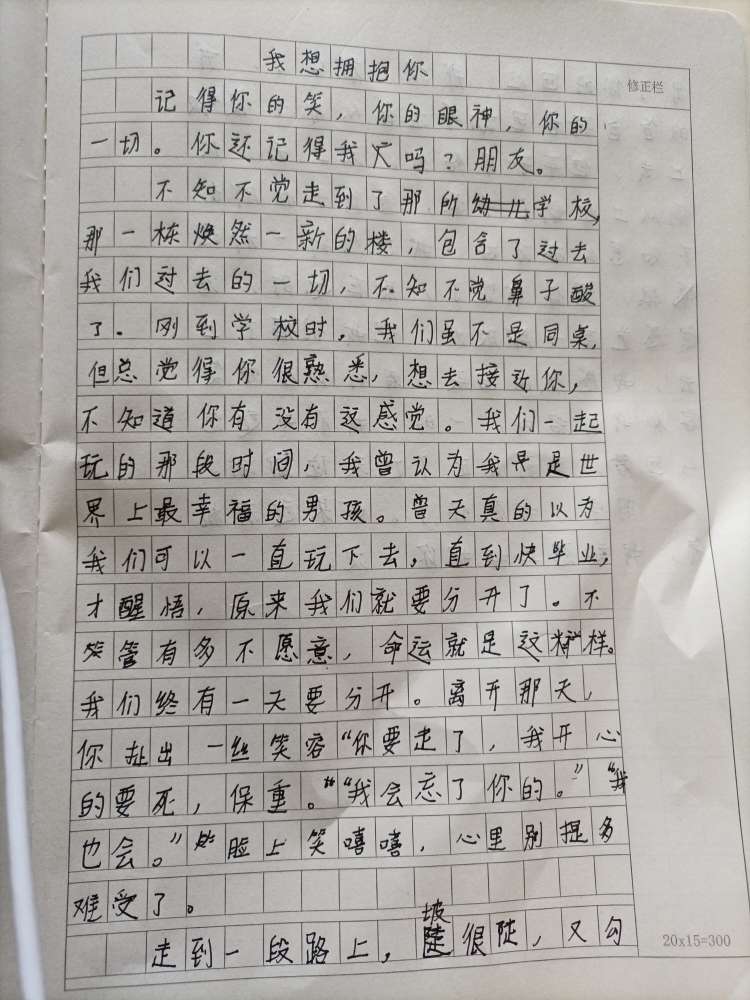 我想拥抱你
修正栏
记得你的笑，你的眼神，你的
一切。你还记得我吗？朋友。
不知不觉走到了那所学校，
那一栋焕然一新的楼，包含了过去
我们过去的一切，不知不觉鼻子酸
了。刚到学校时，我们虽不是同桌，
但总觉得你很熟悉，想去接近你，
不知道你有没有这感觉。我们一起
玩的那段时间，我曾认为我是世
界上最幸福的男孩。曾天真的以为
我们可以一直玩下去，直到快毕业，
才醒悟，原来我们就要分开了。不
管有多不愿意，命运就是这样。
我们终有一天要分开。离开那天，
你扯出一丝笑容“你要走了，我开心
的要死，保重。”“我会忘了你的。”“我
也会。”脸上笑嘻嘻，心里别提多
难受了。
走到一段路上，坡很陡，又勾
20x15=300